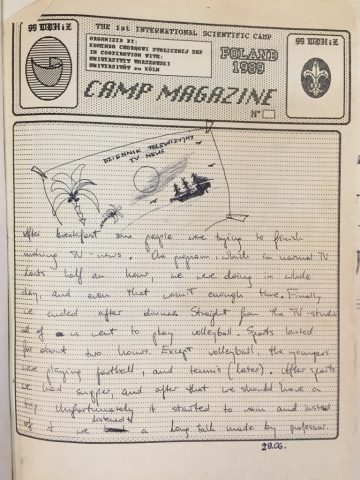 99 WDH i Z
THE 1st INTERNATIONAL SCIENTIFIC CAMP
ORGANIZED BY:
KOMENDA CHORĄGWI STOŁECZNEJ ZHP
IN COOPERATION WITH:
UNIWERSYTET WARSZAWSKI
UNIVERSITÄT zu KÖLN
POLAND
1989
99 WDH i Z
CAMP MAGAZINE
N°
DZIENNIK TELEWIZYJNY
TV NEWS
After breakfast some people were trying to finish
making TV-news. One program, which in normal TV
lasts half an hour, we were doing in whole
day, and even that wasn't enough time. Finally
we ended after dinner. Straight from the TV-studio
all of us went to play volleyball. Sports lasted
for about two hours. Except volleyball, the youngers
were playing football, and tennis (later). After sports
we had supper, and after that we should have a
trip. Unfortunately it started to rain and instead
of it we listened to a long talk made by professor.
29.06.